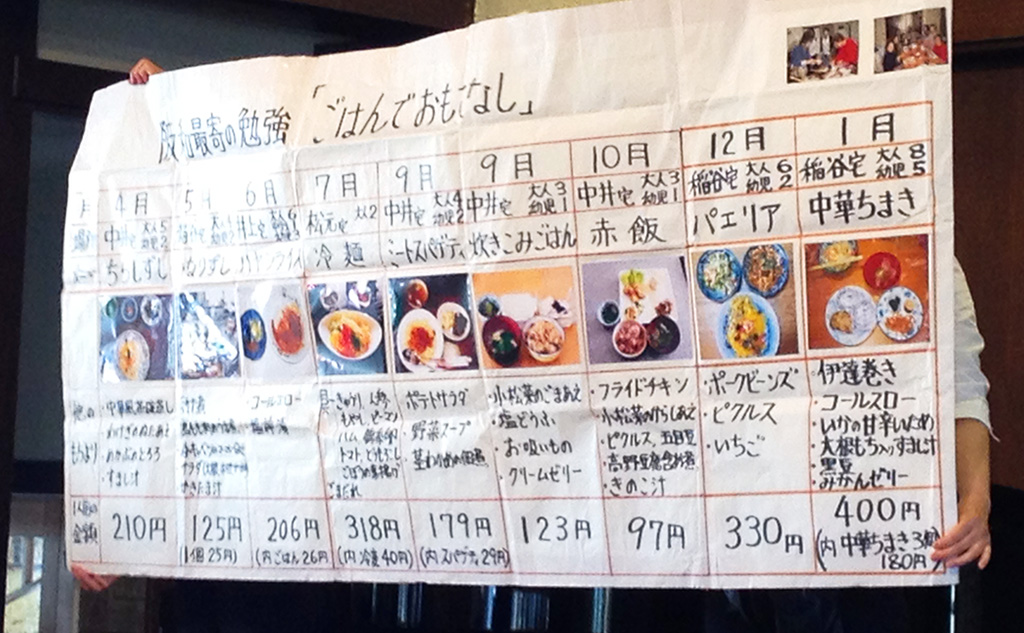 最寄の勉強「ごはんでおもてなし」
4月 5月 6月 7月 9月 9月 10月 12月 1月
中井宅 大人5 幼児2
松元宅 大人2
中井宅 大人4 幼児2
中井宅 大人3 幼児1
中井宅 大人3 幼児1
稲谷宅 大人6 幼児2
稲谷宅 大人8 幼児5
ちらしずし
冷麺
ミートスパゲティ
炊きこみごはん
赤飯
パエリア
中華ちまき
・わかめのとろろ
・すまし汁
・コールスロー
具…きゅうり 人参
もやし ピーマン
ハム
トマト、とうもろこし
ごまだれ
ポテトサラダ
・野菜スープ
・茎わかめの佃煮
・小松菜のごまあえ
・塩どうふ
・お吸いもの
・クリームゼリー
・フライドチキン
小松菜のからしあえ
・ピクルス、五目豆
・高野豆腐含め煮
・きのこ汁
・ポークビーンズ
・ピクルス
・いちご
伊達巻き
・コールスロー
・いかの甘辛いため
・大根もち入りすまし汁
・黒豆
・みかんゼリー
1人分の金額
210円
125円
(1個25円)
206円
(内ごはん26円)
318円
(内 冷麦40円)
179円
(内スパゲティ29円)
123円
97円
330円
400円
(内 中華ちまき3個
180円)